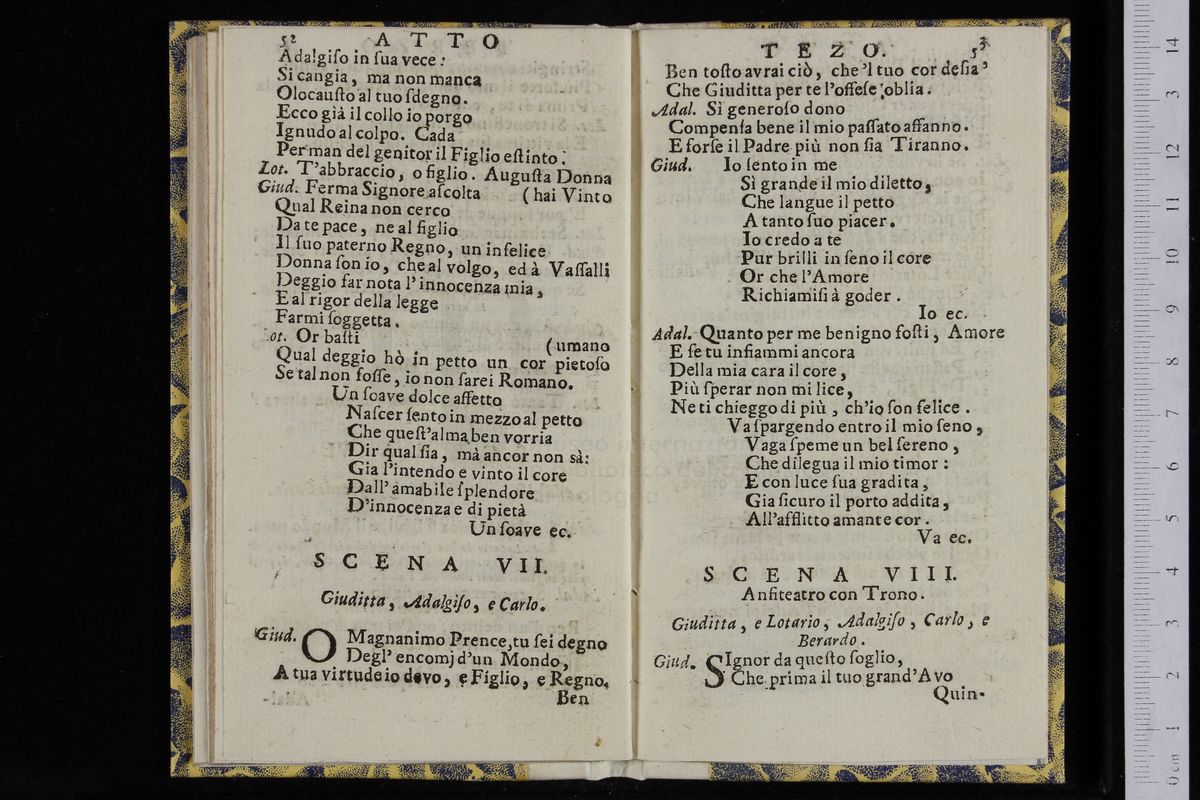 52 ATTO
Adalgiſo in ſua vece:
Si cangia, ma non manca
Olocauſto al tuo ſdegno.
Ecco già il collo io porgo
Ignudo al colpo. Cada
Per man del genitor il Figlio eſtinto.
Lot. T'abbraccio, o figlio. Auguſta Donna
Giud. Ferma Signore aſcolta (hai Vinto
Qual Reina non cerco
Da te pace, ne al figlio
Il ſuo paterno Regno, un infelice
Donna ſon io, che al volgo, ed à Vaſſalli
Deggio far nota l'innocenza mia,
E al rigor della legge
Farmi ſoggetta.
ot. Or baſti (umano
Qual deggio hò in petto un cor pietoſo
Se tal non foſſe, io non ſarei Romano.
Un ſoave dolce affetto
Naſcer ſento in mezzo al petto
Che queſt'alma ben vorria
Dir qual ſia, mà ancor non sà:
Gia l'intendo e vinto il core
Dall' amabile ſplendore
D'innocenza e di pietà
Un ſoave ec.
SCENA VII.
Giuditta, Adalgiſo, e Carlo.
Giud. O Magnanimo Prence, tu ſei degno
Degl' encomj d'un Mondo,
A tua virtude io devo, e Figlio, e Regno.
Ben
TEZO. 53
Ben toſto avrai ciò, che 'l tuo cor deſia'
Che Giuditta per te l'offeſe oblia.
Adal. Sì generoſo dono
Compenſa bene il mio paſſato affanno.
E forſe il Padre più non ſia Tiranno.
Giud. Io ſento in me
Sì grande il mio diletto,
Che langue il petto
A tanto ſuo piacer.
Io credo a te
Pur brilli in ſeno il core
Or che l'Amore
Richiamiſi à goder.
Io ec.
Adal. Quanto per me benigno foſti, Amore
E ſe tu infiammi ancora
Della mia cara il core,
Più ſperar non mi lice,
Ne ti chieggo di più, ch'io ſon felice.
Va ſpargendo entro il mio ſeno,
Vaga ſpeme un bel ſereno,
Che dilegua il mio timor:
E con luce ſua gradita,
Gia ſicuro il porto addita,
All'afflitto amante cor.
Va ec.
SCENA VIII.
Anfiteatro con Trono.
Giuditta, e Lotario, Adalgiſo, Carlo, e
Berardo.
Giud. SIgnor da queſto ſoglio,
Che prima il tuo grand'Avo
Quin-